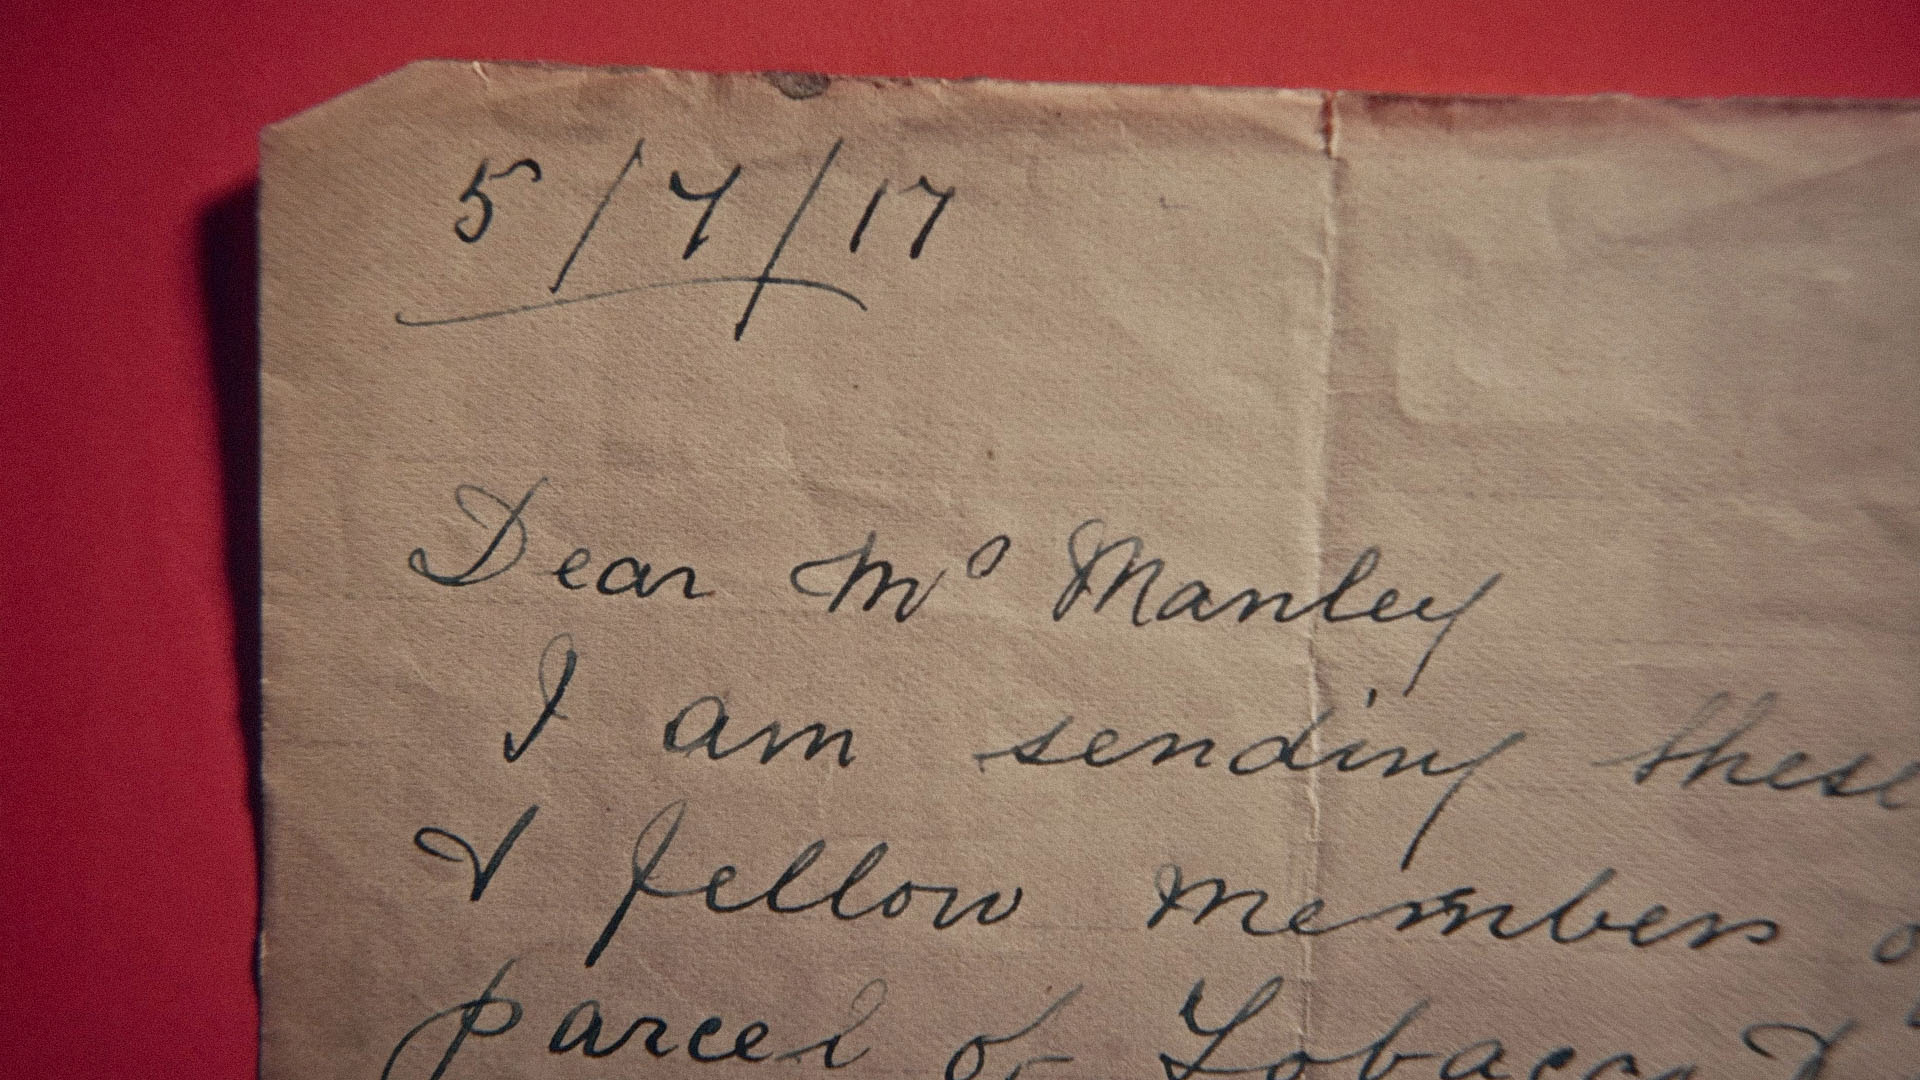 5/7/17
Dear Mr Manley
I am sending these
& fellow members o
parcel of Tobacco &